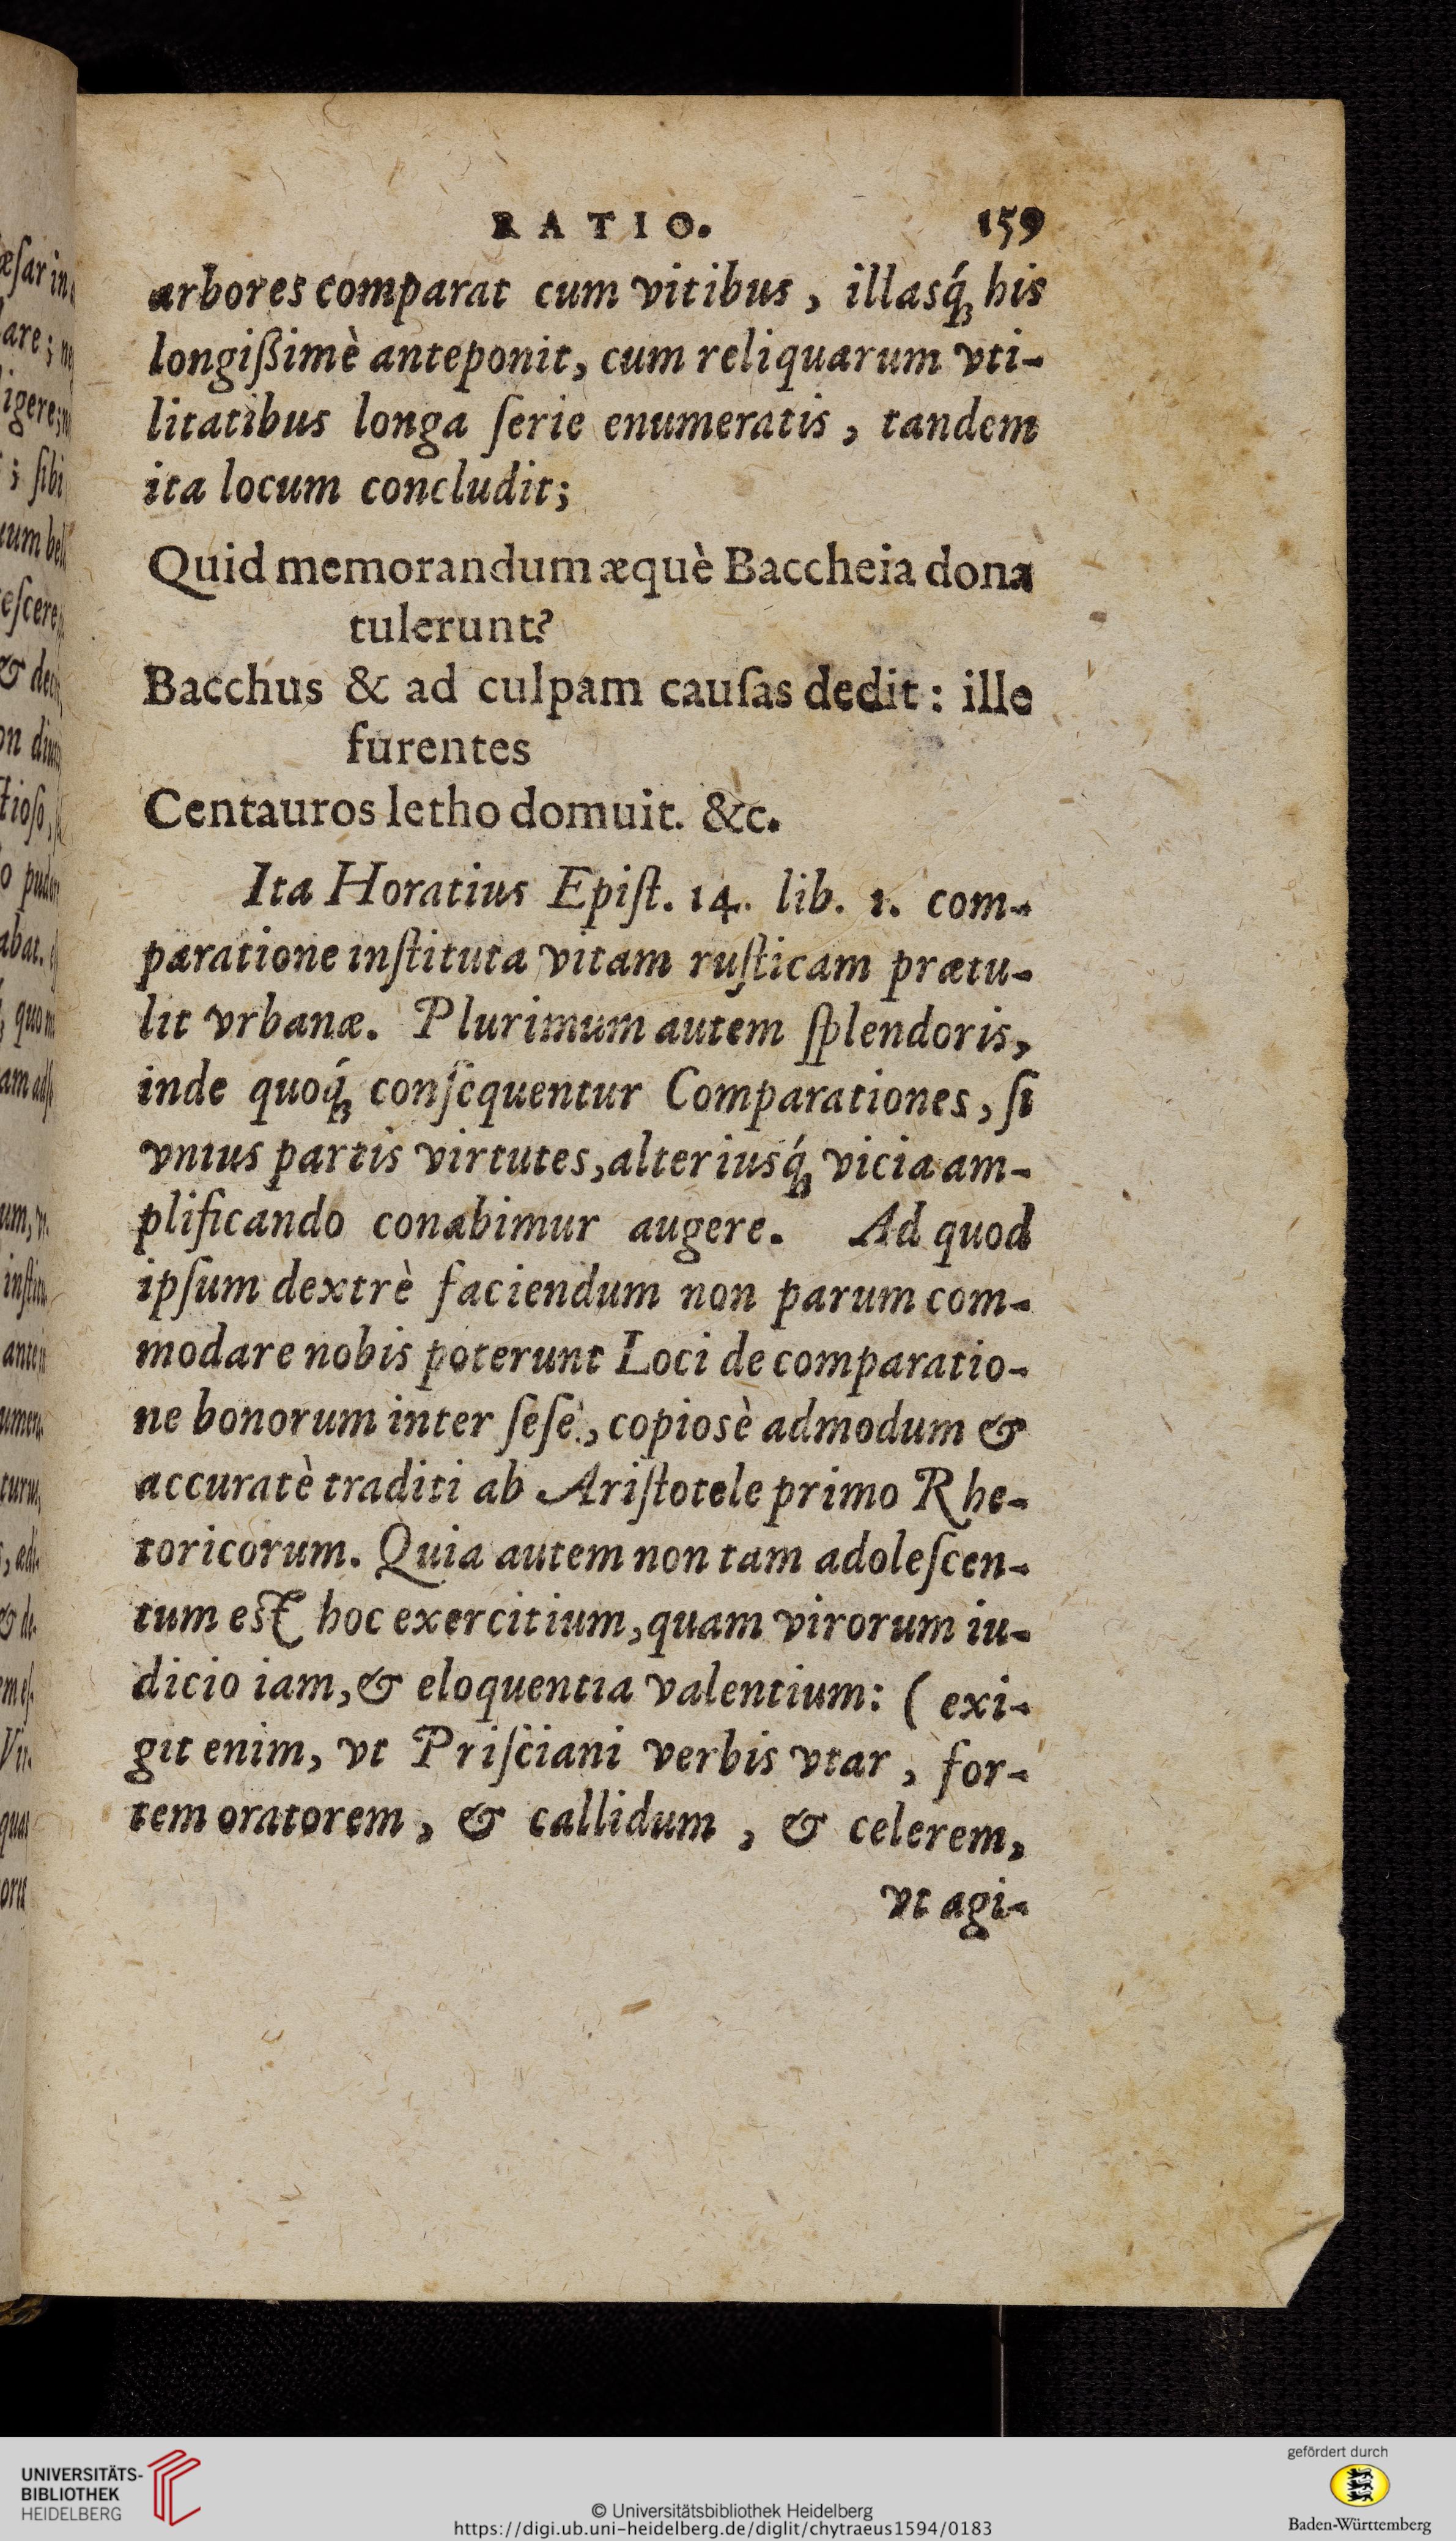 RATIO. 159
arbores comparat cum vitibus, illasq́ꝫ his
longißimè anteponit, cum reliquarum vti-
litatibus longa ſerie enumeratis, tandem
ita locum concludit;
Quid memorandum æquè Baccheia dona
tulerunt?
Bacchus & ad culpam cauſas dedit: ille
furentes
Centauros letho domuit. &c.
Ita Horatius Epiſt. 14. lib. 1. com-
paratione inſtituta vitam ruſticam prætu-
lit vrbanæ. Plurimum autem ſplendoris,
inde quoq́ꝫ conſequentur Comparationes, ſi
vnius partis virtutes, alteriusq́ꝫ vicia am-
plificando conabimur augere. Ad quod
ipſum dextrè faciendum non parum com-
modare nobis poterunt Loci de comparatio-
ne bonorum inter ſeſe, copiosè admodum &
accuratè traditi ab Ariſtotele primo Rhe-
toricorum. Quia autem non tam adoleſcen-
tum eſt hoc exercitium, quam virorum iu-
dicio iam, & eloquentia valentium: (exi-
git enim, vt Priſciani verbis vtar, for-
tem oratorem, & callidum, & celerem,
vt agi-
UNIVERSITÄTS-
BIBLIOTHEK
HEIDELBERG
© Universitätsbibliothek Heidelberg
https://digi.ub.uni-heidelberg.de/diglit/chytraeus1594/0183
gefördert durch
Baden-Württemberg